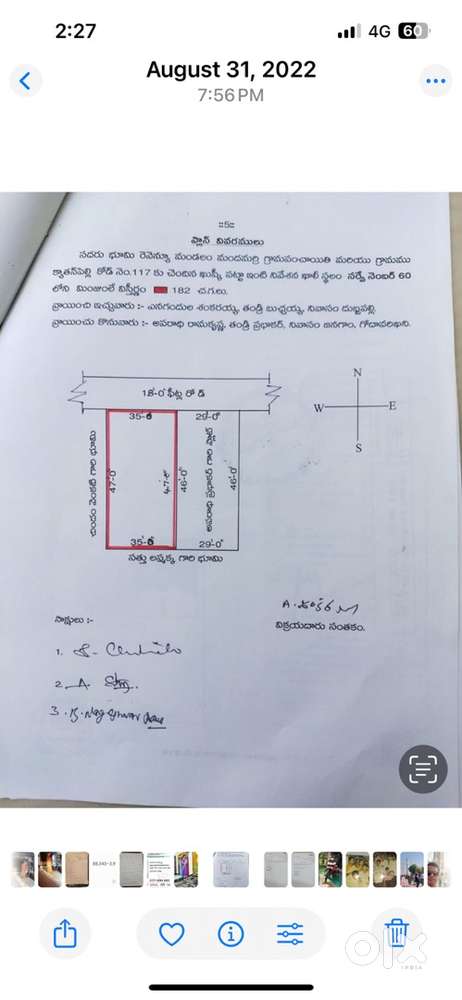 2:27
4G 60
August 31, 2022
7:56 PM
::5::
ప్లాన్ వివరములు
సదరు భూమి రెవెన్యూ మండలం మందమర్రి గ్రామపంచాయితి మరియు గ్రామము
క్యాతన్‌పెల్లి కోడ్ నెం.117 కు చెందిన ఖుష్కీ పట్టా ఇంటి నివేశన ఖాళీ స్థలం సర్వే నెంబర్ 60
లోని మింజుంలే విస్తీర్ణం 182 చ.గ.లు.
వ్రాయించి ఇచ్చువారు :- ఎనగందుల శంకరయ్య, తండ్రి బుచ్చయ్య, నివాసం దుబ్బపల్లి.
వ్రాయించు కొనువారు :- అపరాధి రామకృష్ణ, తండ్రి ప్రభాకర్, నివాసం జనగాం, గోదావరిఖని.
N
W E
S
18'-0" ఫీట్ల రోడ్
35'-6 29'-0"
చుందం వెంకటి గారి భూమి
47'-0"
47'-0"
46'-0"
అపరాధి ప్రభాకర్ గారి ప్లాట్
46'-0"
35'-6 29'-0"
సత్తు లష్మక్క గారి భూమి
సాక్షులు :-
విక్రయదారు సంతకం.
1.
2. A
3. B. Nageshwar
olx
INDIA